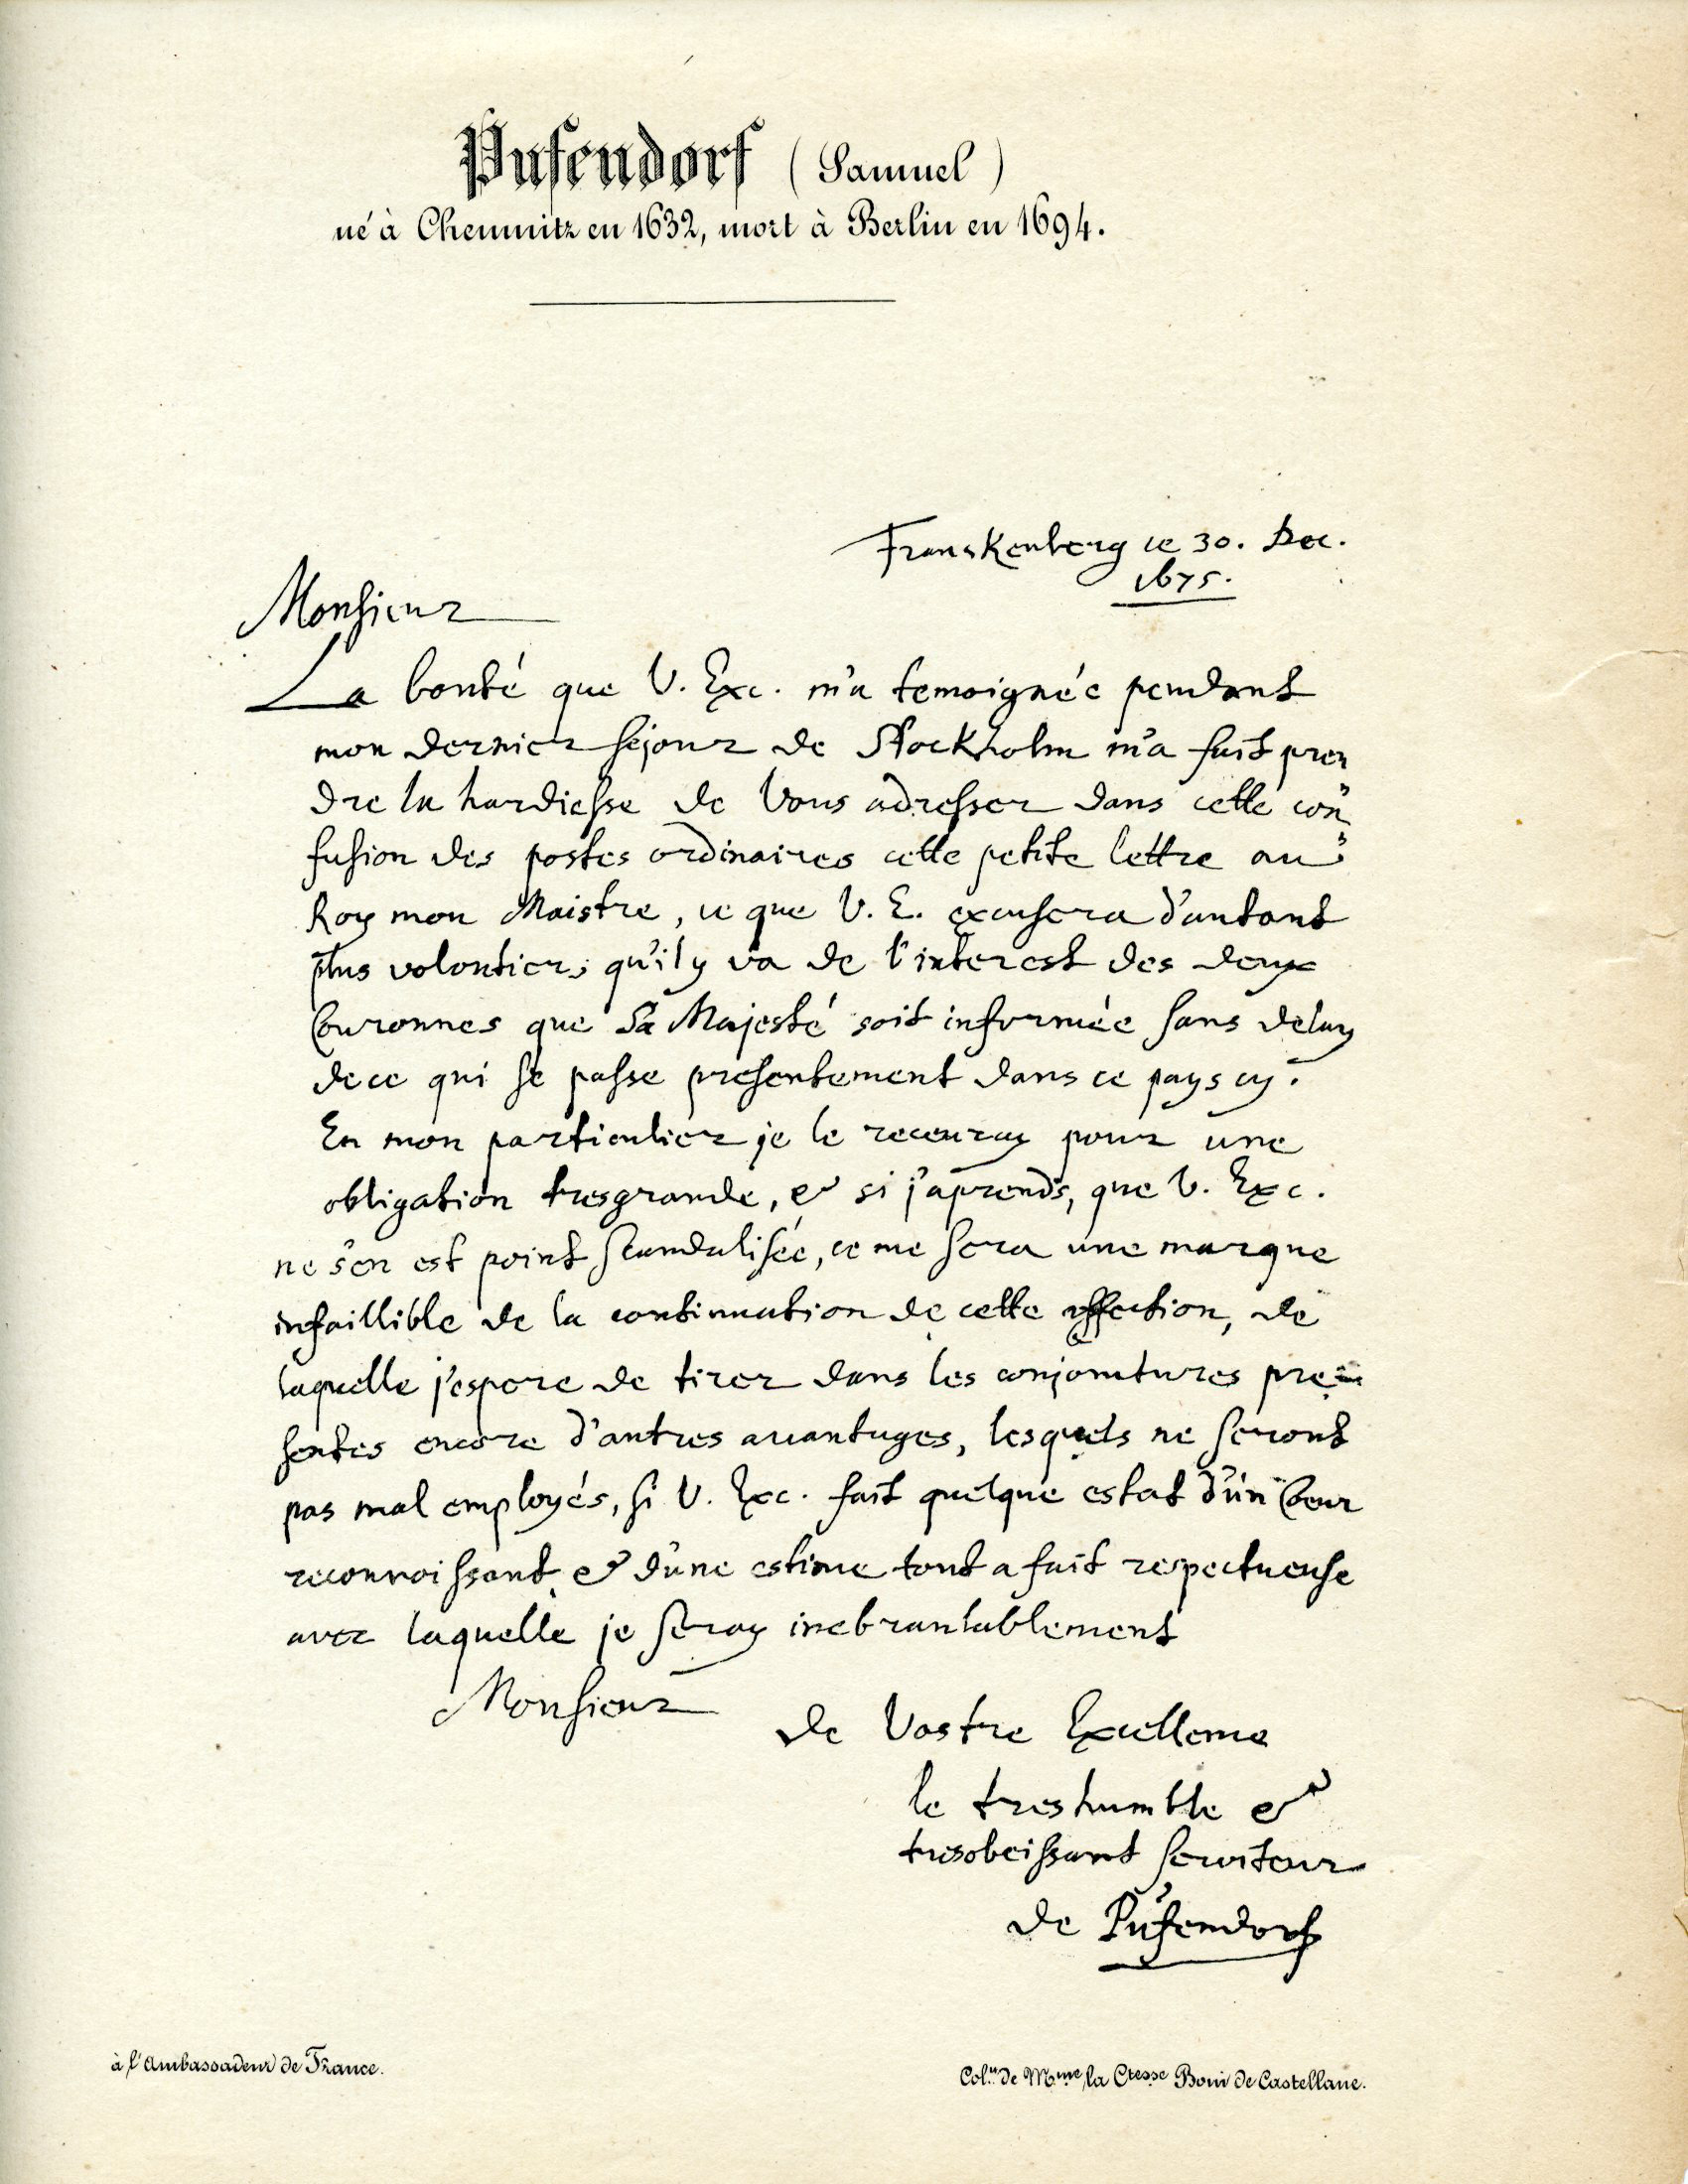 Pufendorf (Samuel)
né à Chemnitz en 1632, mort à Berlin en 1694.
Franskenberg ce 30. Dec.
1675.
Monsieur
La bonté que V. Exc. m'a temoignée pendant
mon dernier sejour de Stockholm m'a fait pren
dre la hardiesse de Vous adresser dans cette con
fusion des postes ordinaires cette petite lettre au
Roy mon Maistre, ce que V. E. excusera d'autant
plus volontiers qu'il y va de l'interest des deux
Couronnes que Sa Majesté soit informée sans delay
de ce qui se passe presentement dans ce pays cy.
En mon particulier je le recevray pour une
obligation tresgrande, & si j'aprends, que V. Exc.
ne s'en est point scandalisée, ce me sera une marque
infaillible de la continuation de cette affection, de
laquelle j'espere de tirer dans les conjonctures pre=
sentes encore d'autres avantages, lesquels ne seront
pas mal employés, si V. Exc. fait quelque estat d'un Coeur
reconnoissant & d'une estime tout a fait respectueuse
avec laquelle je seray inebranlablement
Monsieur
de Vostre Excellence
le treshumble &
tresobeissant serviteur
de Pufendorf
à l'Ambassadeur de France.
Col.on de Mme la Ctesse Boni de Castellane.